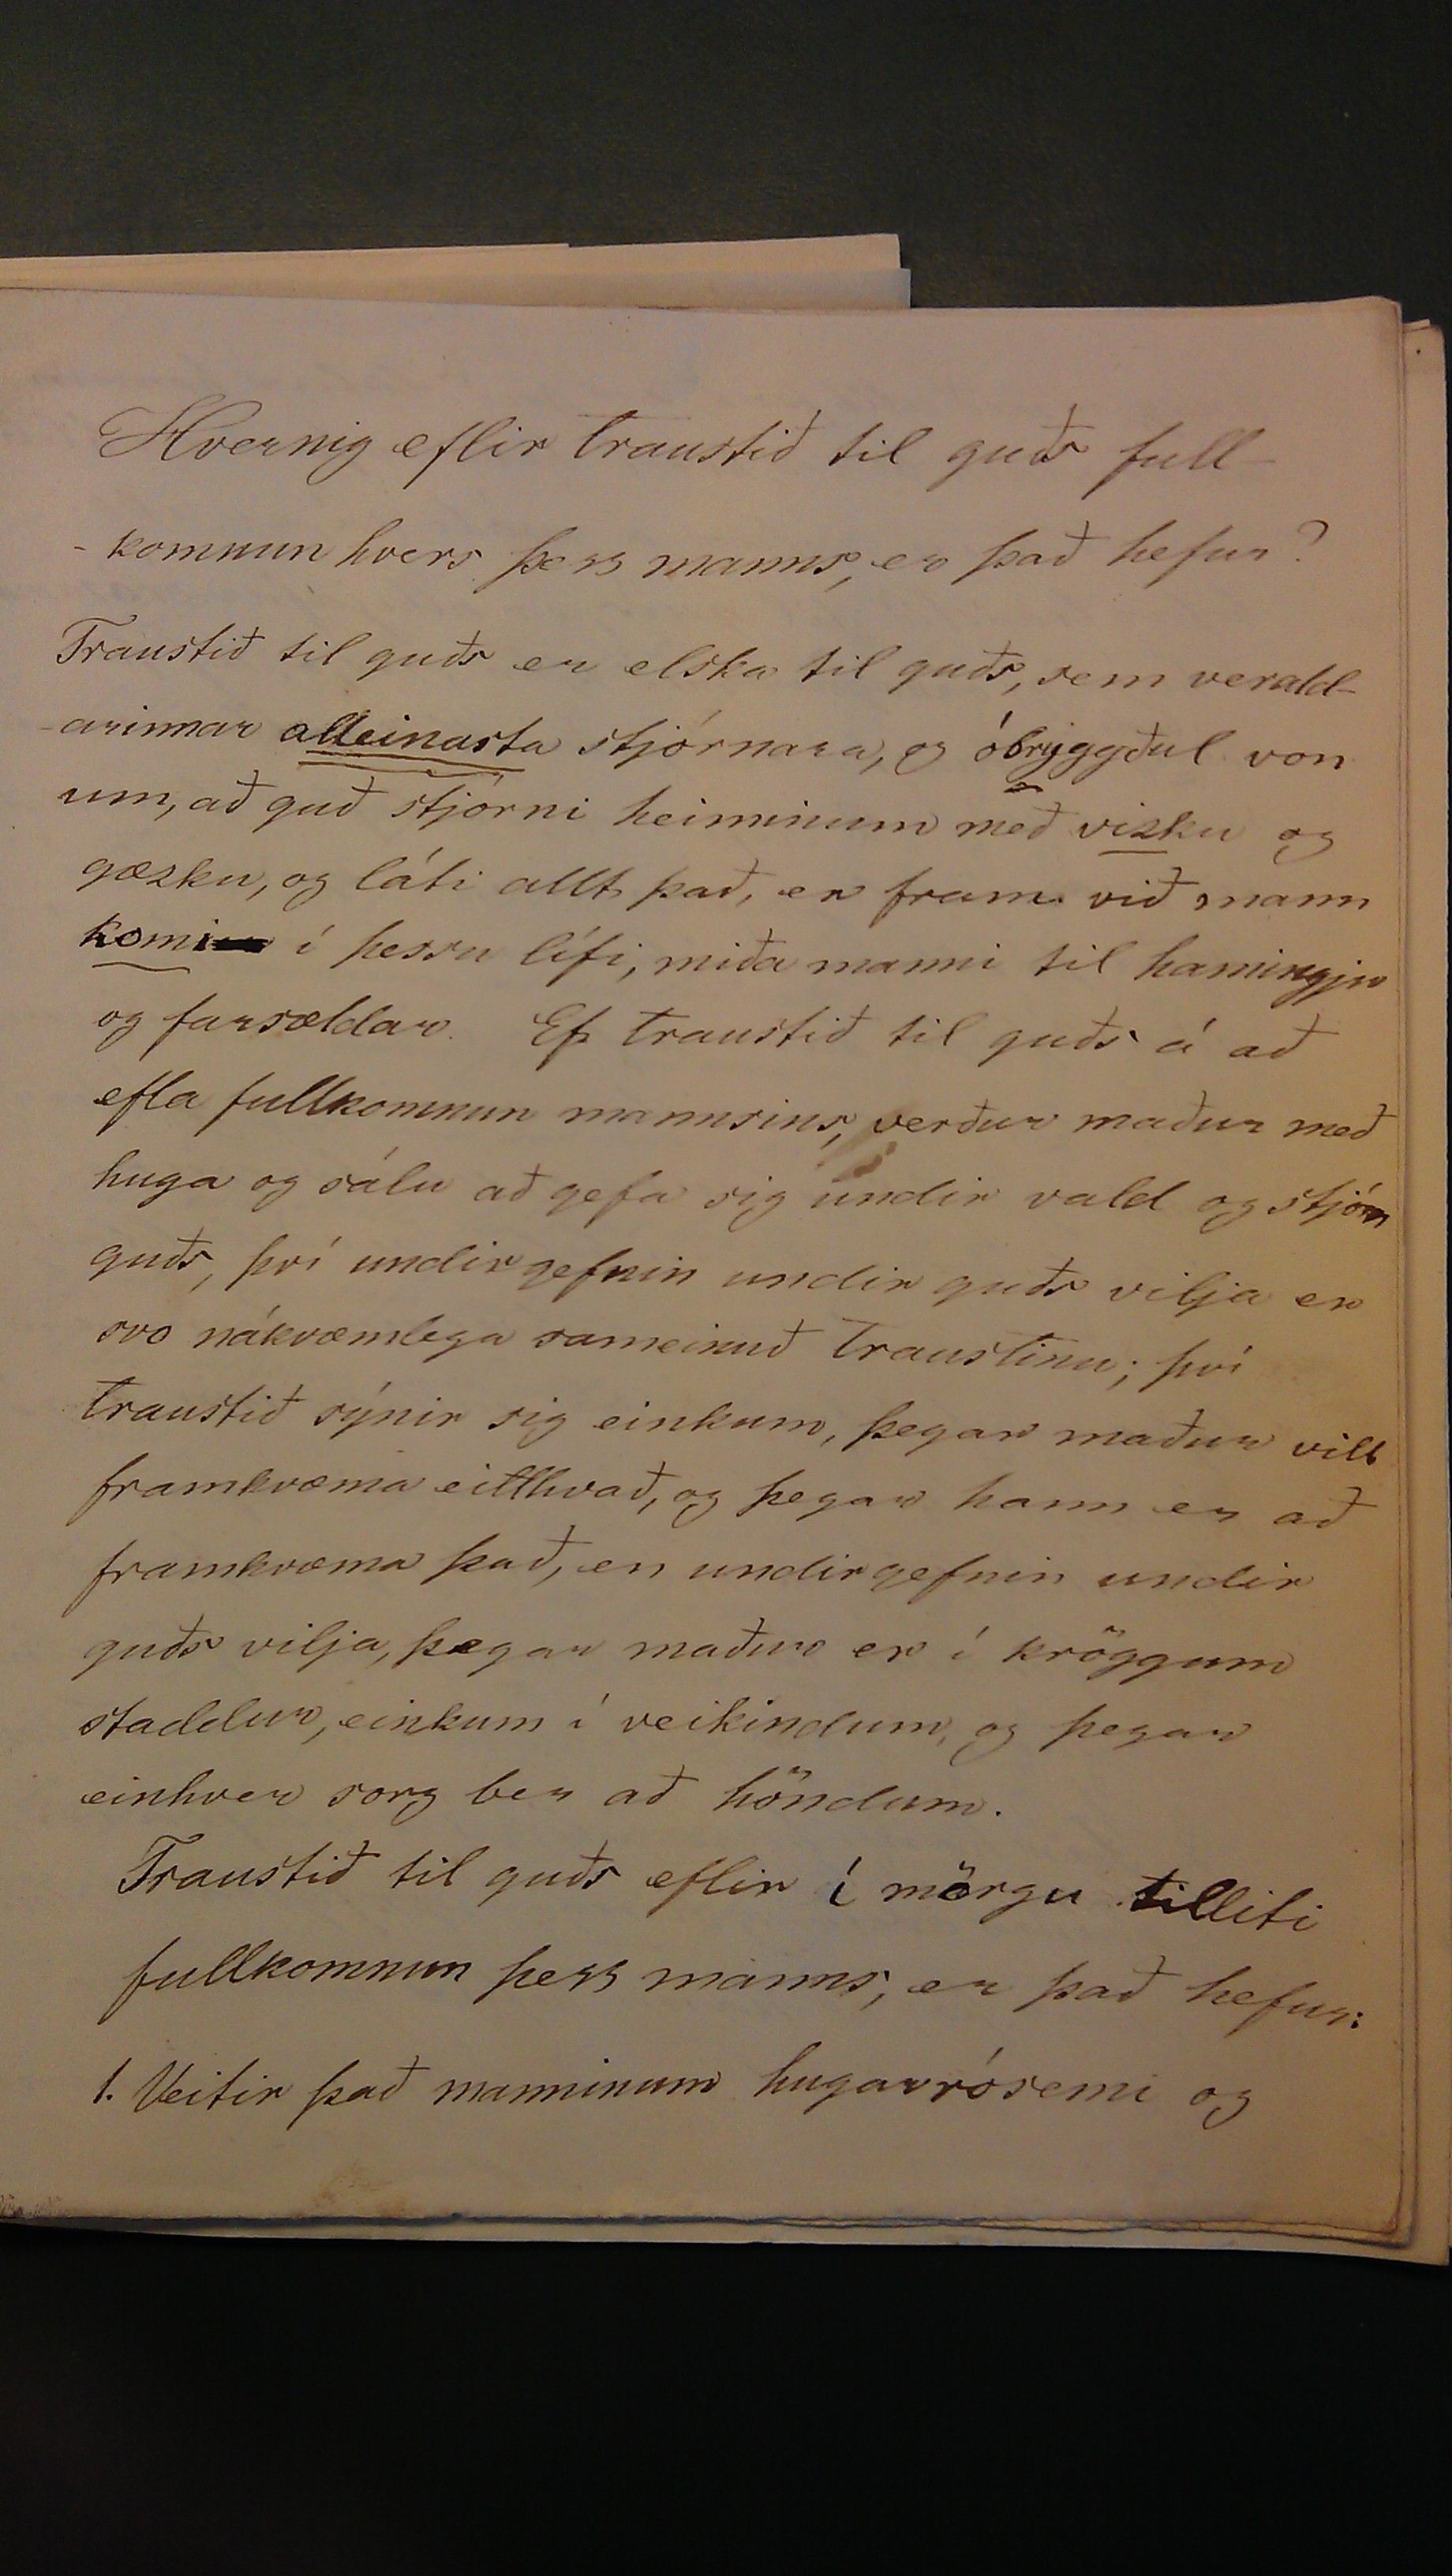 Hvernig eflir traustið til guðs full-
-komnun hvers þess manns, er það hefur?
Traustið til guðs er elska til guðs, sem verald-
-arinnar alleinasta stjórnara, og óbryggðul von
um, að guð stjórni heiminum með vizku og
gæzku, og láti allt það, er fram við mann
komi í þessu lífi, miða manni til hamingju
og farsældar. Ef traustið til guðs á að
efla fullkomnun mannsins, verður maður með
huga og sálu að gefa sig undir vald og stjórn
guðs, því undirgefnin undir guðs vilja er
svo nákvæmlega sameinuð traustinu; því
traustið sýnir sig einkum, þegar maður vill
framkvæma eitthvað, og þegar hann er að
framkvæma það, en undirgefnin undir
guðs vilja, þegar maður er í kröggum
staddur, einkum í veikindum, og þegar
einhver sorg ber að höndum.
Traustið til guðs eflir í mörgu tilliti
fullkomnun þess manns, er það hefur:
1. Veitir það manninum hugarrósemi og